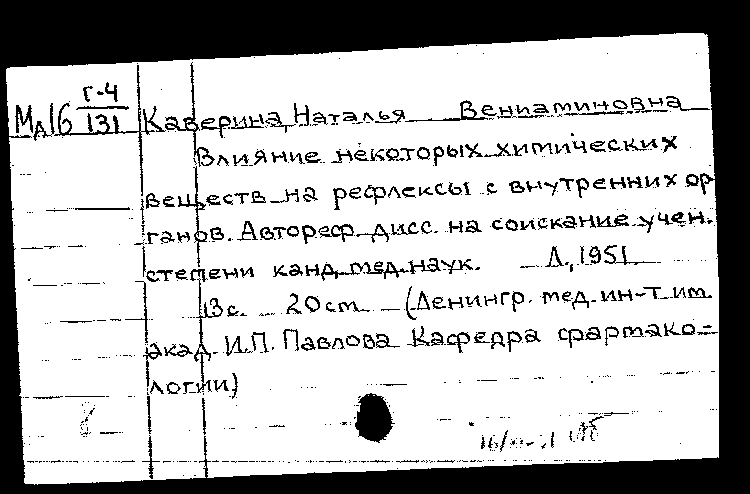 Мд16 Г-4/131 Каверина, Наталья Вениаминовна
Влияние некоторых химических
веществ на рефлексы с внутренних ор
ганов. Автореф. дисс. на соискание учен.
степени канд. мед. наук. Л., 1951.
13 с. 20 см. (Ленингр. мед. ин-т им.
акад. И.П. Павлова Кафедра фармако-
логии)
8